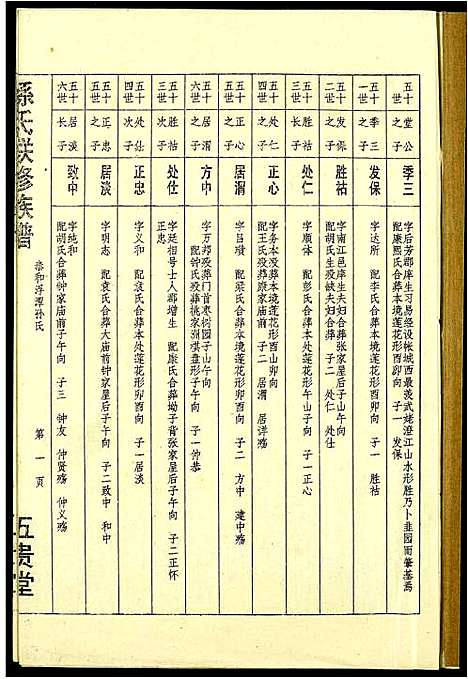 五十世 堂公之子 季三
字后芳郡庠生习易经设帐城西最羡武姥澄江山水形胜乃卜韭园而肇基焉
配康熙氏合葬本境莲花形酉卯向 子一 发保
五十一世 季三之子 发保
字达所 配李氏合葬本境莲花形酉卯向 子一 胜祜
五十二世 发保之子 胜祜
字南江邑庠生夫妇合葬张家屋后子山午向
配胡氏生殁缺夫妇合葬 子二 处仁 处仕
五十三世 胜祜长子 处仁
字顺斋 配彭氏合葬本境莲花形午山子向 子一正心
五十四世 处仁之子 正心
字务本殁葬本境莲花形酉山卯向
配王氏殁葬康家垅 子二 居渭 居洋殇
五十五世 正心之子 居渭
字吕璜 配梁氏合葬本境莲花形酉向 子二 方中 建中殇
五十六世 居渭之子 方中
字万邦殁葬门首枣树园子山午向
配钟氏殁葬桃家洲棋盘形子午向 子一仲恭
五十三世 胜祜次子 处仕
字廷相号士人郡增生 配康氏合葬坳子背张家屋后子午向 子二正怀
正忠
五十四世 处仕次子 正忠
字义和 配 氏合葬本处莲花形卯酉向 子一居淡
五十五世 正忠之子 居淡
字明志 配袁氏合葬大庙前钟家屋后子午向 子二致中 和中
五十六世 居淡长子 致中
字纯和
配胡氏合葬钟家庙前子午向 子三 钟友 仲贤殇 仲义殇
孙氏联修族谱
泰和浮潭孙氏
第一页
五贵堂